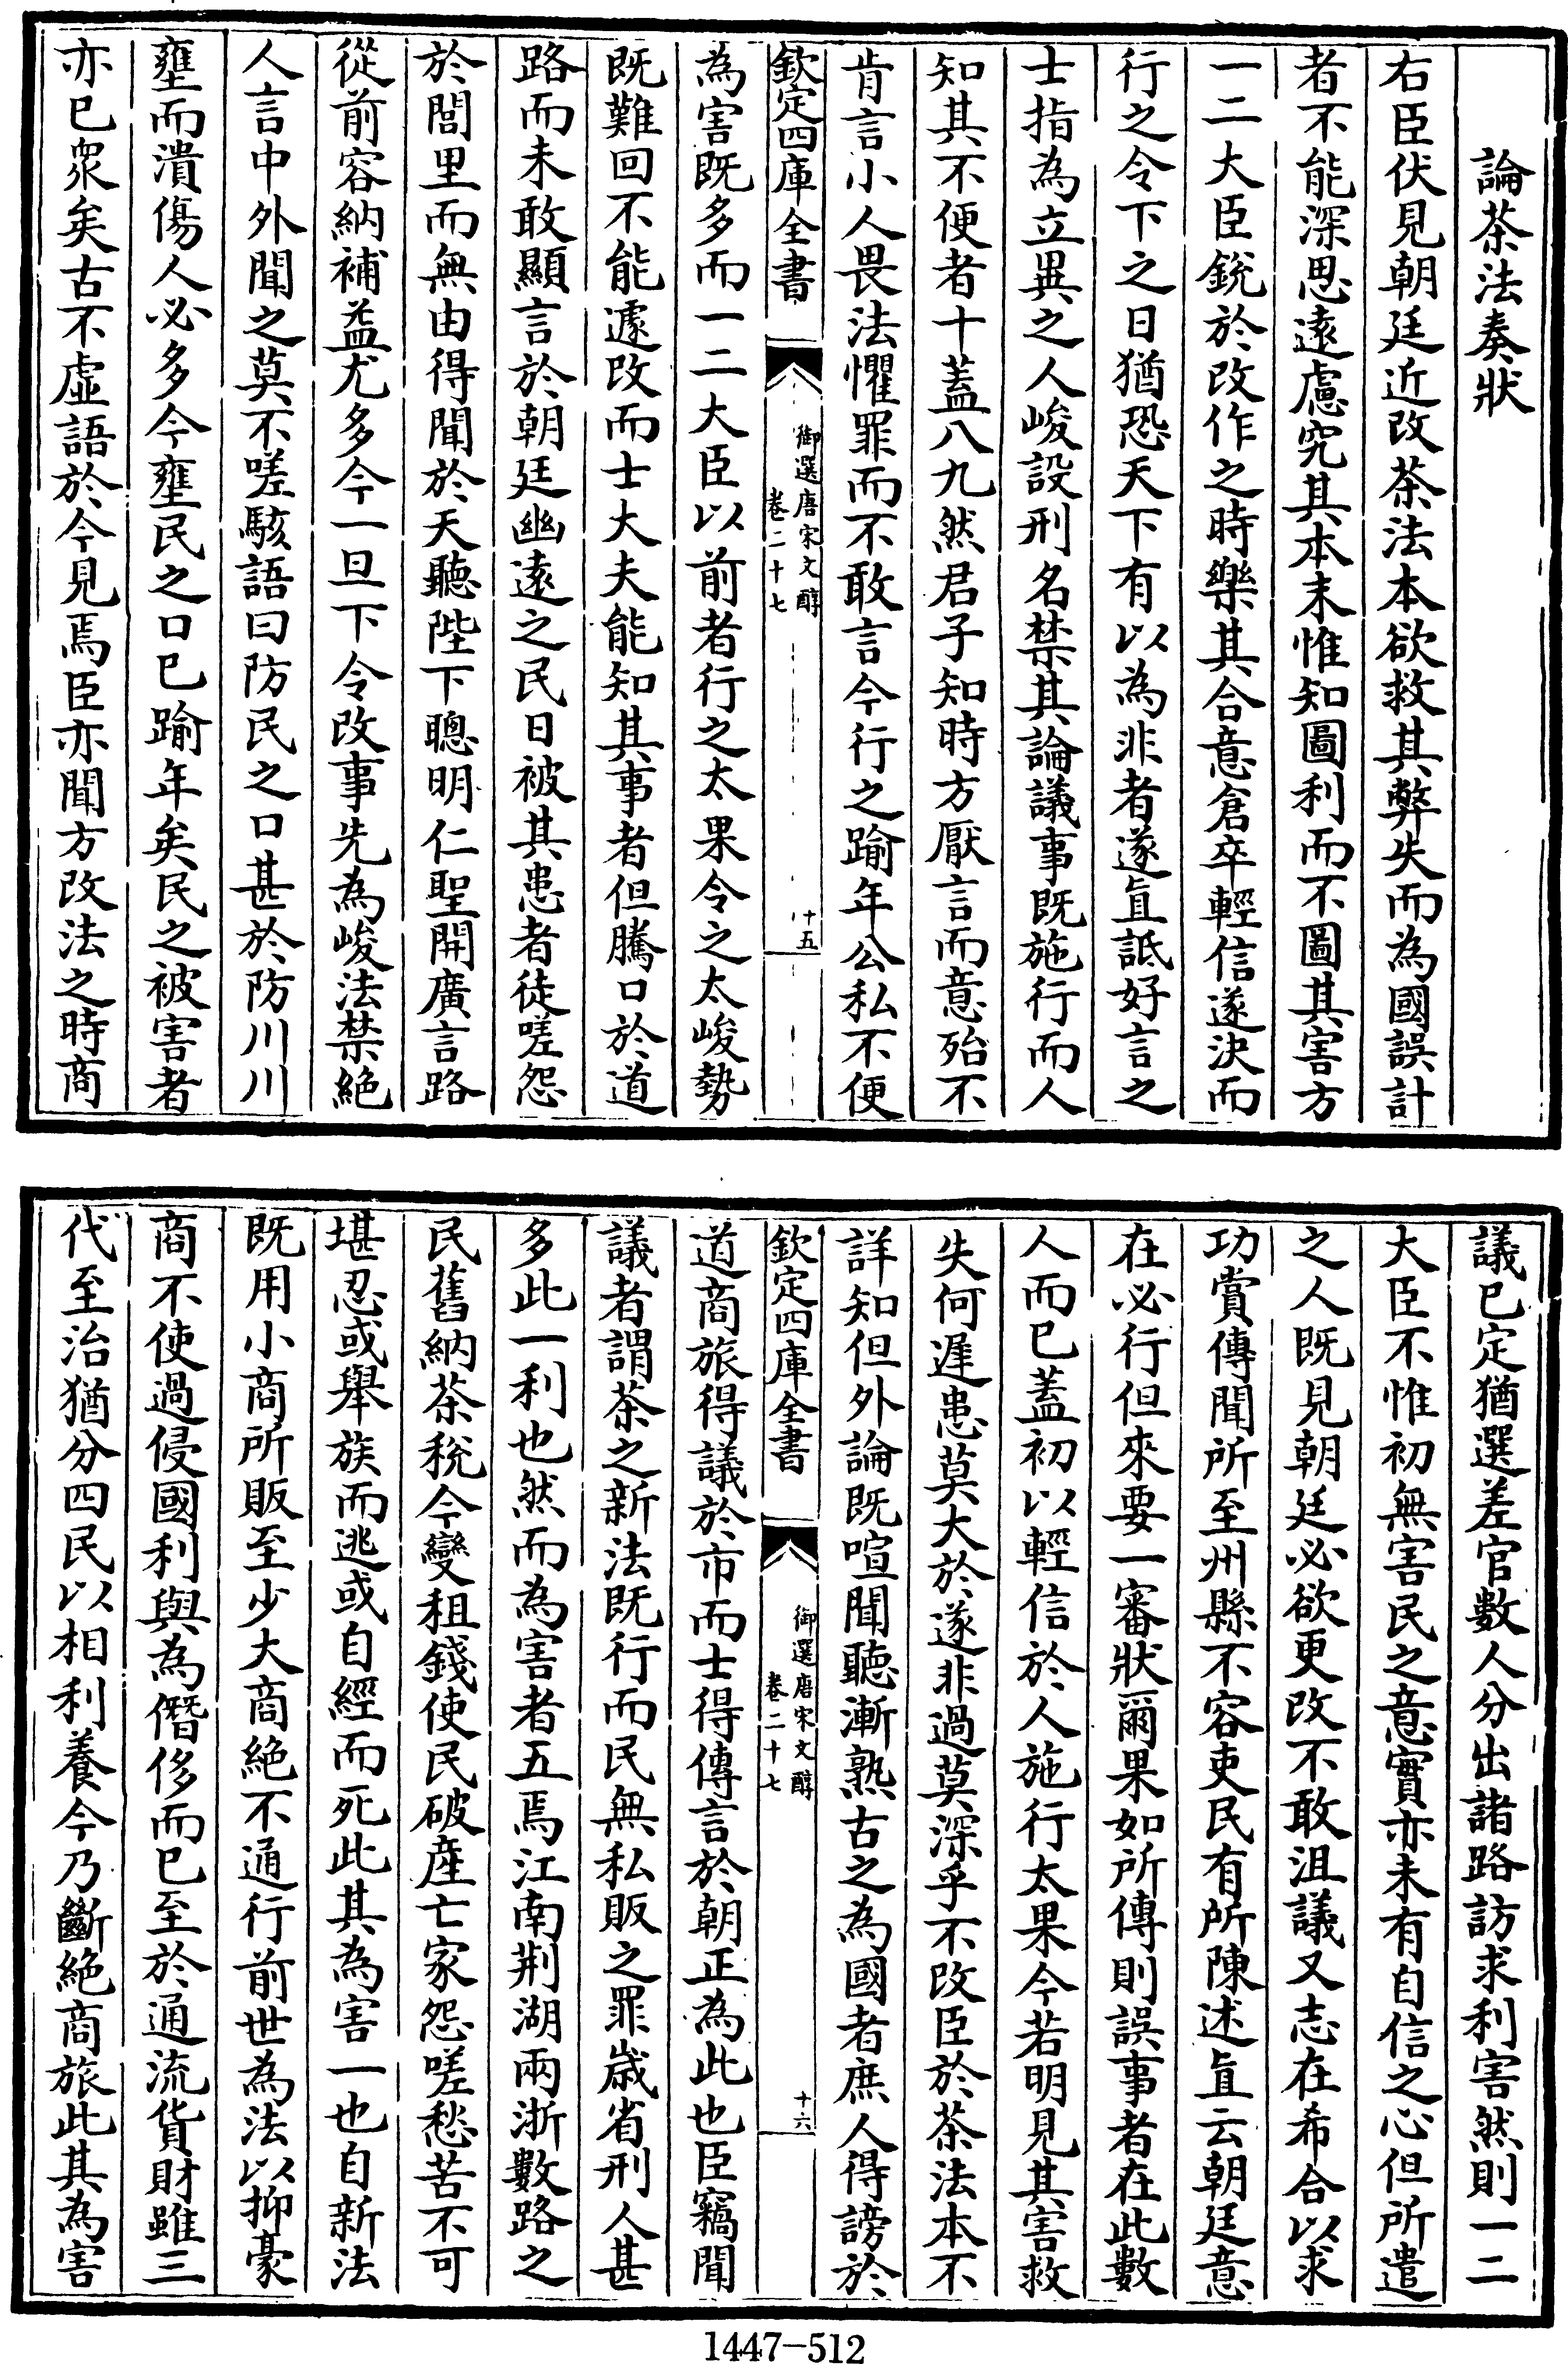 論茶法奏狀
右臣伏見朝廷近改茶法本欲救其弊失而為國誤計
者不能深思遠慮究其本末惟知圖利而不圖其害方
一二大臣銳於改作之時樂其合意倉卒輕信遂決而
行之令下之日猶恐天下有以為非者遂直詆好言之
士指為立異之人峻設刑名禁其論議事既施行而人
知其不便者十蓋八九然君子知時方厭言而意殆不
肯言小人畏法懼罪而不敢言今行之踰年公私不便
欽定四庫全書
御選唐宋文醇
卷二十七
十五
為害既多而一二大臣以前者行之太果令之太峻勢
既難回不能遽改而士大夫能知其事者但騰口於道
路而未敢顯言於朝廷幽遠之民日被其患者徒嗟怨
於閭里而無由得聞於天聽陛下聰明仁聖開廣言路
從前容納補益尤多今一旦下令改事先為峻法禁絕
人言中外聞之莫不嗟駭語曰防民之口甚於防川川
壅而潰傷人必多今壅民之口已踰年矣民之被害者
亦已衆矣古不虛語於今見焉臣亦聞方改法之時商
議已定猶選差官數人分出諸路訪求利害然則一二
大臣不惟初無害民之意實亦未有自信之心但所遣
之人既見朝廷必欲更改不敢沮議又志在希合以求
功賞傳聞所至州縣不容吏民有所陳述直云朝廷意
在必行但來要一審狀爾果如所傳則誤事者在此數
人而已蓋初以輕信於人施行太果今若明見其害救
失何遲患莫大於遂非過莫深乎不改臣於茶法本不
詳知但外論既喧聞聽漸熟古之為國者庶人得謗於
欽定四庫全書
御選唐宋文醇
卷二十七
十六
道商旅得議於市而士得傳言於朝正為此也臣竊聞
議者謂茶之新法既行而民無私販之罪歲省刑人甚
多此一利也然而為害者五焉江南荆湖兩浙數路之
民舊納茶稅今變租錢使民破產亡家怨嗟愁苦不可
堪忍或舉族而逃或自經而死此其為害一也自新法
既用小商所販至少大商絕不通行前世為法以抑豪
商不使過侵國利與為僭侈而已至於通流貨財雖三
代至治猶分四民以相利養今乃斷絕商旅此其為害
1447-512